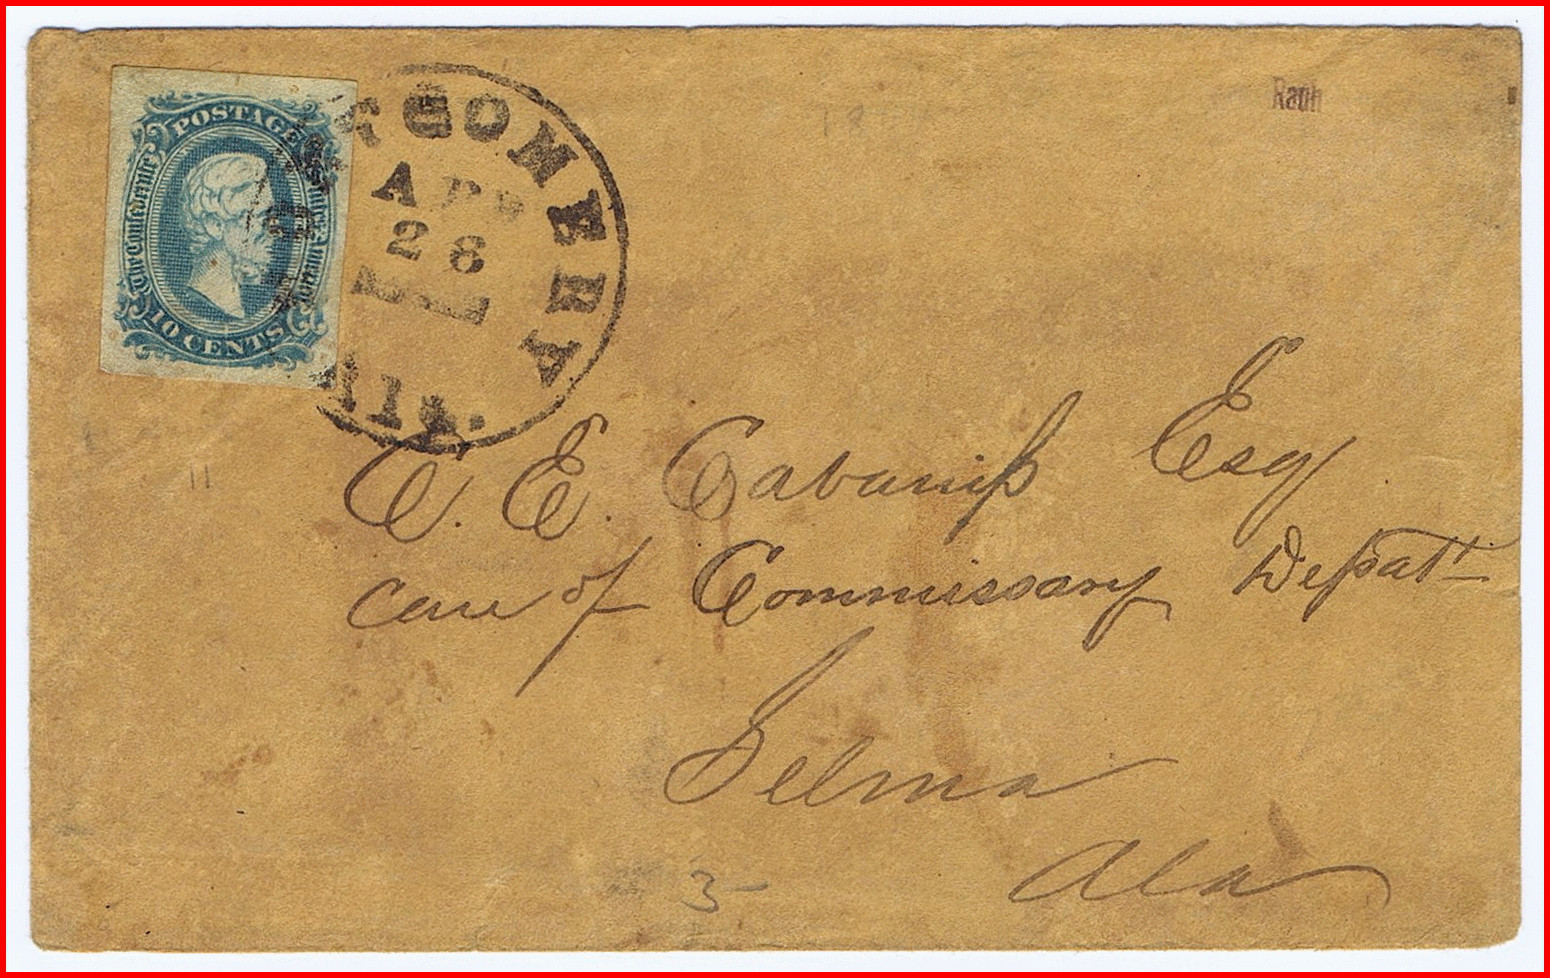 POSTAGE
The Confederate States of America
10 CENTS
GOMERY
APR
28
ALA.
Raph
C. E. Cabaniss Esq
Care of Commissary Depat
Selma
Ala
3